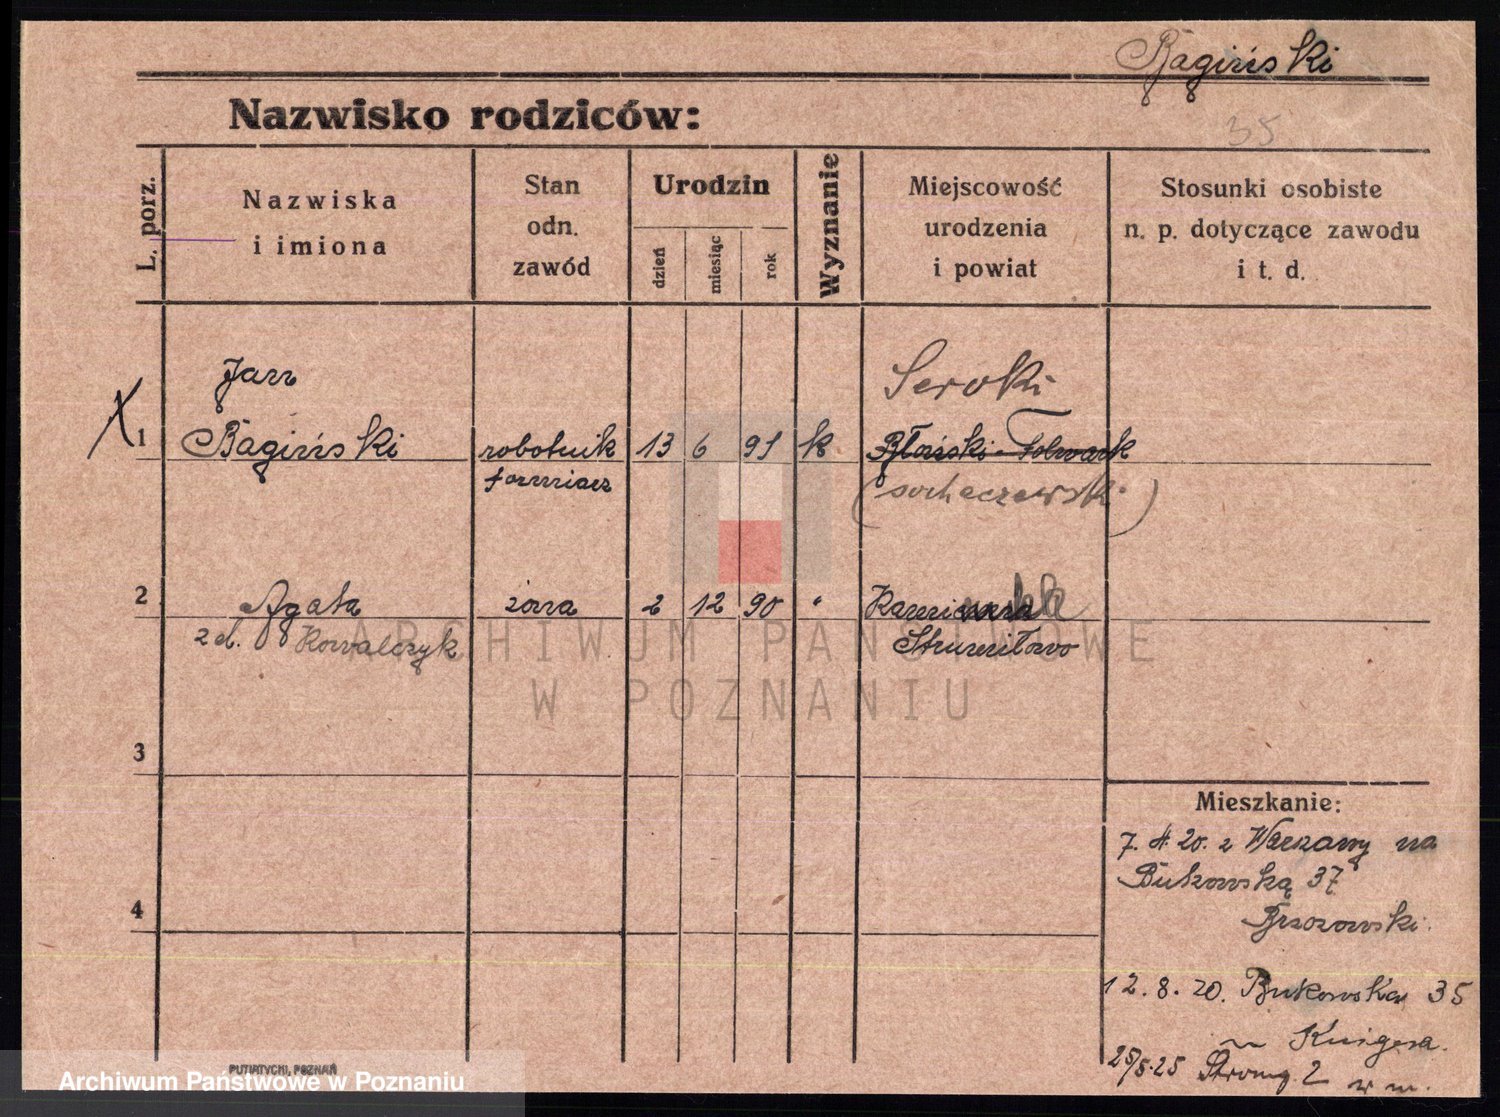 Bagiński
Nazwisko rodziców:
35
L. porz.
Nazwiska
i imiona
Stan
odn.
zawód
Urodzin
dzień
miesiąc
rok
Wyznanie
Miejscowość
urodzenia
i powiat
Stosunki osobiste
n. p. dotyczące zawodu
i t. d.
Jan
Seroki
1 Bagiński robotnik 13 6 91 k Błoński-Folwark
(sochaczewski)
2 Agata żona 2 12 90 " 
z d. Kowalczyk Strumiłowo
ARCHIWUM PAŃSTWOWE
W POZNANIU
3
Mieszkanie:
7. 4. 20. z Warszawy na
Bukowską 37
Brzozowski.
4
12. 8. 20. Bukowska 35
25/5.25 2 w m.
PUTIATYCKI, POZNAŃ
Archiwum Państwowe w Poznaniu